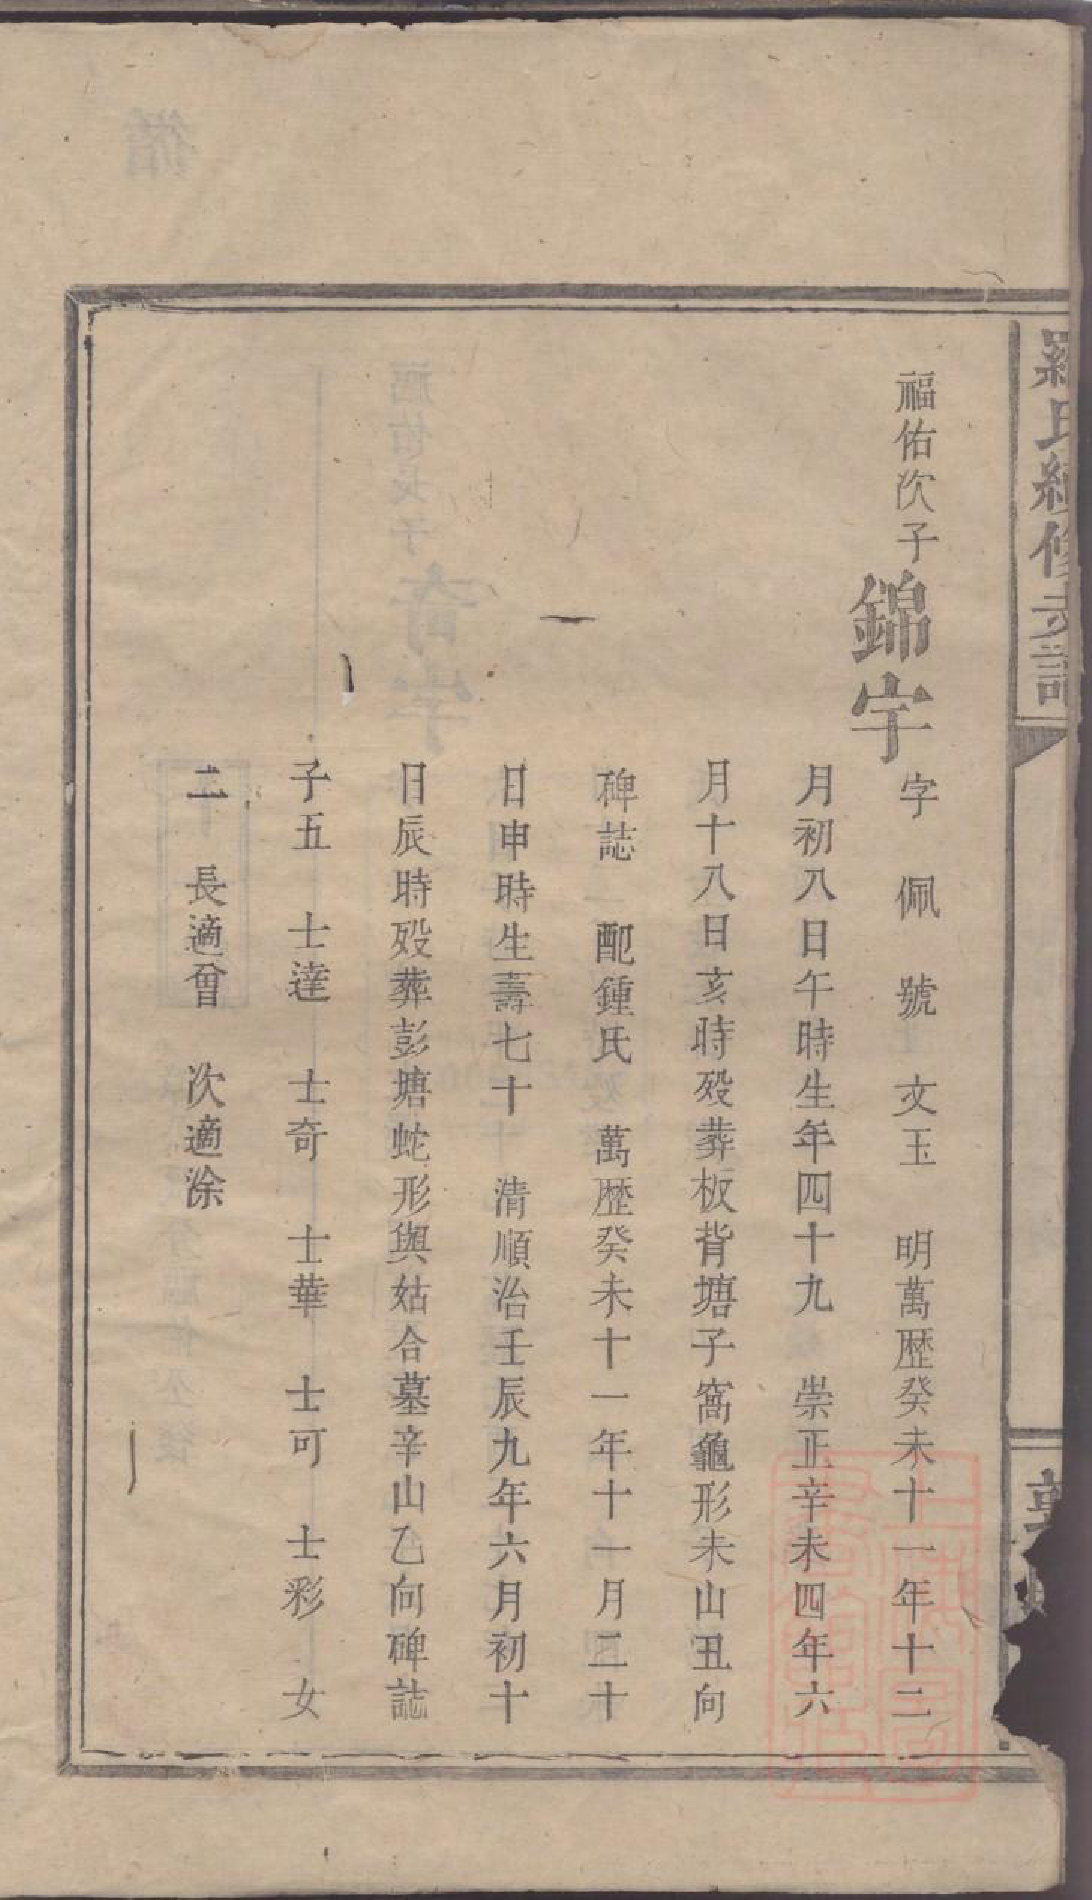 羅氏續修支譜
福佑次子
錦宇
字佩號文玉 明萬歷癸未十一年十二
月初八日午時生年四十九 崇正辛未四年六
月十八日亥時殁葬板背塘子窩龜形未山丑向
碑誌 配鍾氏 萬歷癸未十一年十一月二十
日申時生壽七十 清順治壬辰九年六月初十
日辰時殁葬彭塘蛇形與姑合墓辛山乙向碑誌
子五 士達 士奇 士華 士可 士彩 女
二 長適曾 次適涂